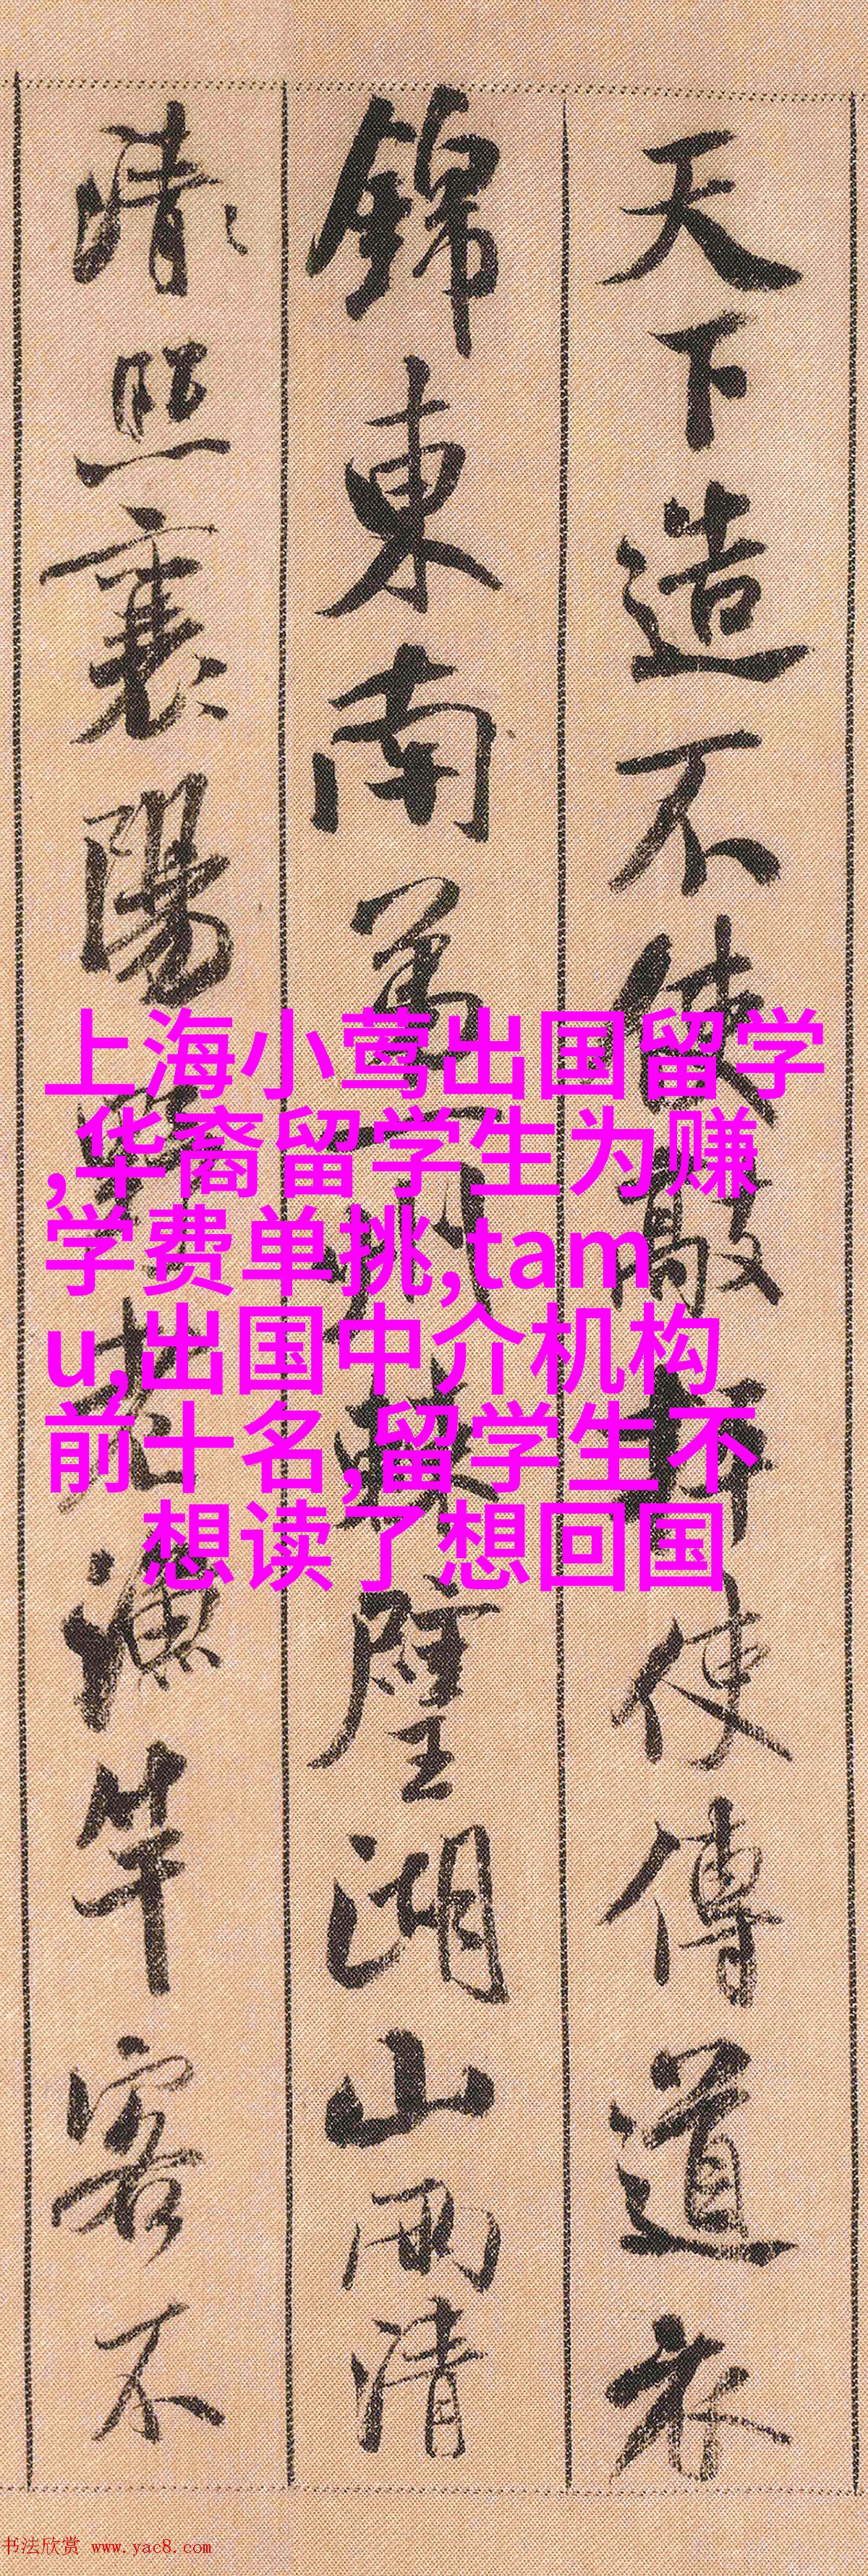 天下造不使敲
使傳道衣
錦東南第一州
璧湖山兩清
清照襄陽
老漁竿客不
上海小莺出国留学
,华裔留学生为赚
学费单挑,tam
u,出国中介机构
前十名,留学生不
想读了想回国
书法欣赏 www.yac8.com